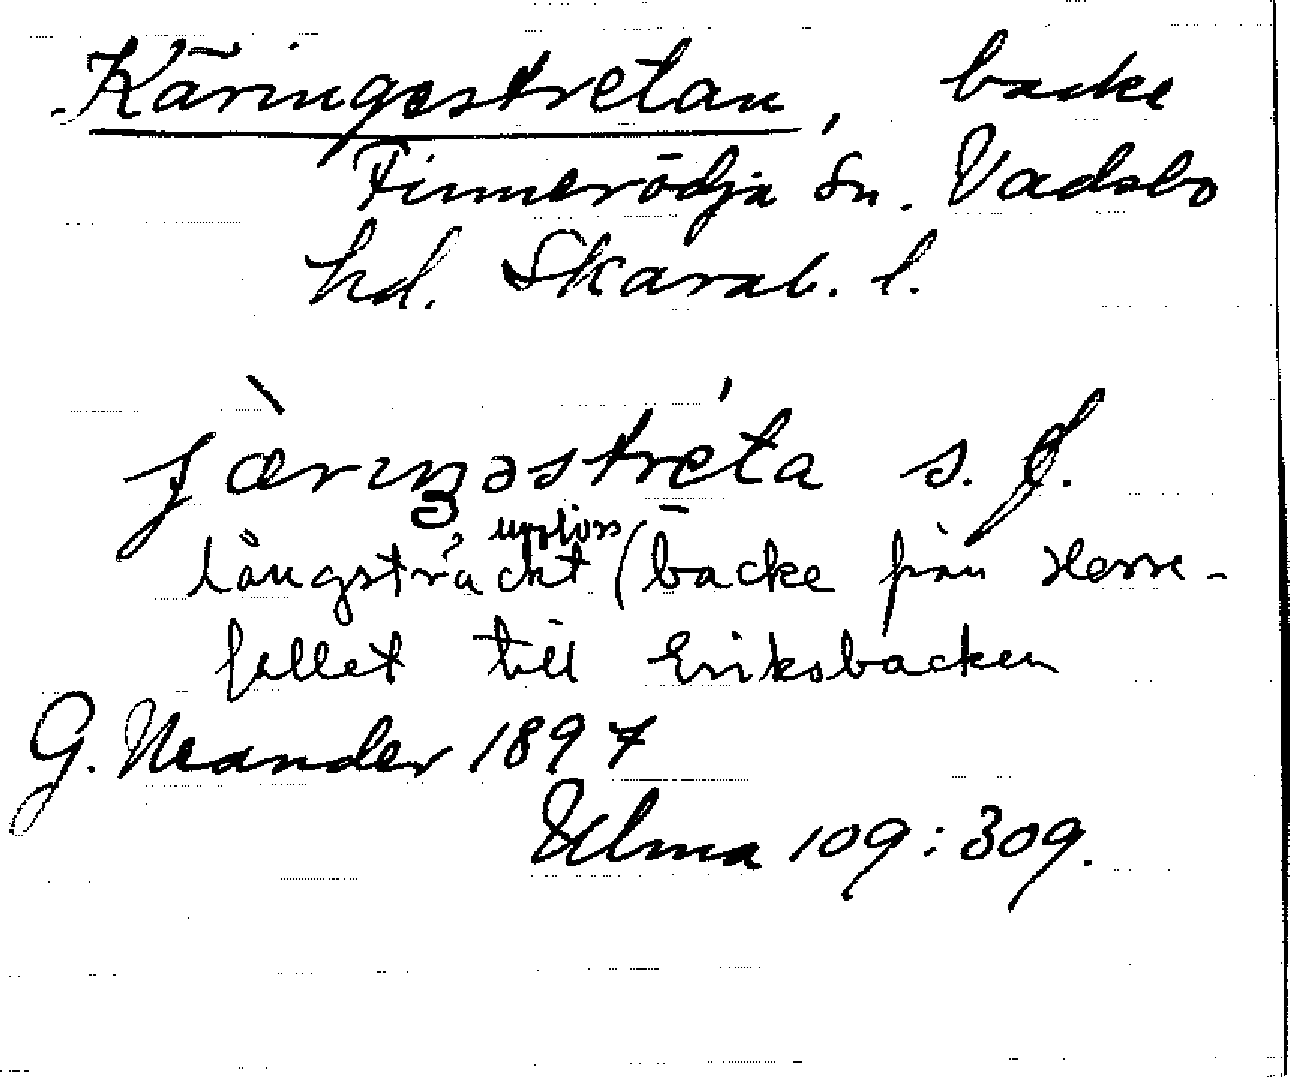 Käringestretan, backe
Finnerödja sn. Vadsbo
hd. Skarab. l.
s. f.
upplöss
långsträckt (backe från Herre-
fellet till Eriksbacken
G. Neander 1897
Ulma 109:309.